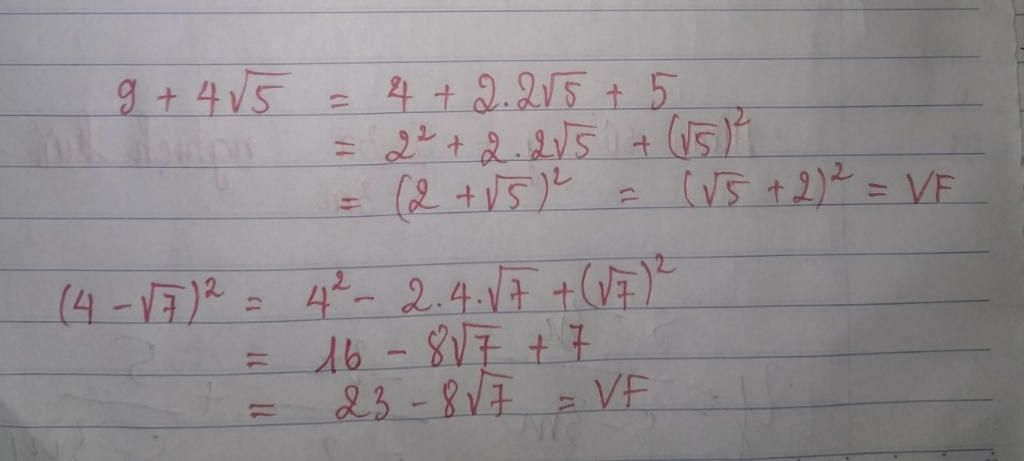 9 + 4√5 = 4 + 2.2√5 + 5
= 2² + 2.2√5 + (√5)²
= (2 + √5)² = (√5 + 2)² = VF
(4 - √7)² = 4² - 2.4.√7 + (√7)²
= 16 - 8√7 + 7
= 23 - 8√7 = VF